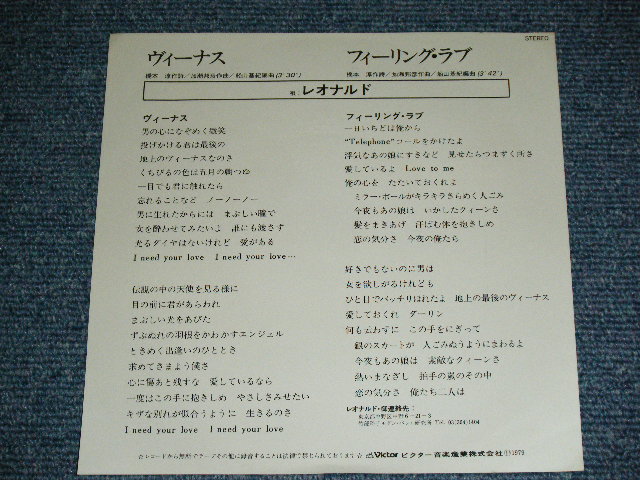 STEREO
ヴィーナス
橋本 淳作詩/加瀬邦彦作曲/船山基紀編曲(3′30″)
フィーリング・ラブ
橋本 淳作詩/加瀬邦彦作曲/船山基紀編曲(3′42″)
唄:レオナルド
ヴィーナス
男の心になぞめく微笑
投げかける君は最後の
地上のヴィーナスなのさ
くちびるの色は五月の朝つゆ
一目でも君に触れたら
忘れることなど ノーノーノー
男に生れたからには まぶしい瞳で
女を酔わせてみたいよ 誰にも渡さず
光るダイヤはないけれど 愛がある
I need your love I need your love…
伝説の中の天使を見る様に
目の前に君があらわれ
まぶしい光をあびた
ずぶぬれの羽根をかわかすエンジェル
ときめく出逢いのひととき
求めてさまよう僕さ
心に傷あと残すな 愛しているなら
一度はこの手に抱きしめ やさしさみせたい
キザな別れが似合うように 生きるのさ
I need your love I need your love
フィーリング・ラブ
一日いちどは俺から
"Telephone"コールをかけたよ
浮気なあの娘にすきなど 見せたらつまずく所さ
愛しているよ Love to me
俺の心を たたいておくれよ
ミラー・ボールがキラキラきらめく人ごみ
今夜もあの娘は いかしたクィーンさ
髪をまきあげ 汗ばむ体を抱きしめ
恋の気分さ 今夜の俺たち
好きでもないのに男は
女を欲しがるけれども
ひと目でバッチリほれたよ 地上の最後のヴィーナス
愛しておくれ ダーリン
何も云わずに この手をにぎって
銀のスカートが 人ごみぬうようにまわるよ
今夜もあの娘は 素敵なクィーンさ
熱いまなざし 拍手の嵐のその中
恋の気分さ 俺たち二人は
レオナルド・御連絡先:
東京都中野区中野6-21-3
☆レコードから無断でテープその他に録音することは法律で禁じられております☆
Victor ビクター音楽産業株式会社 Ⓟ1979